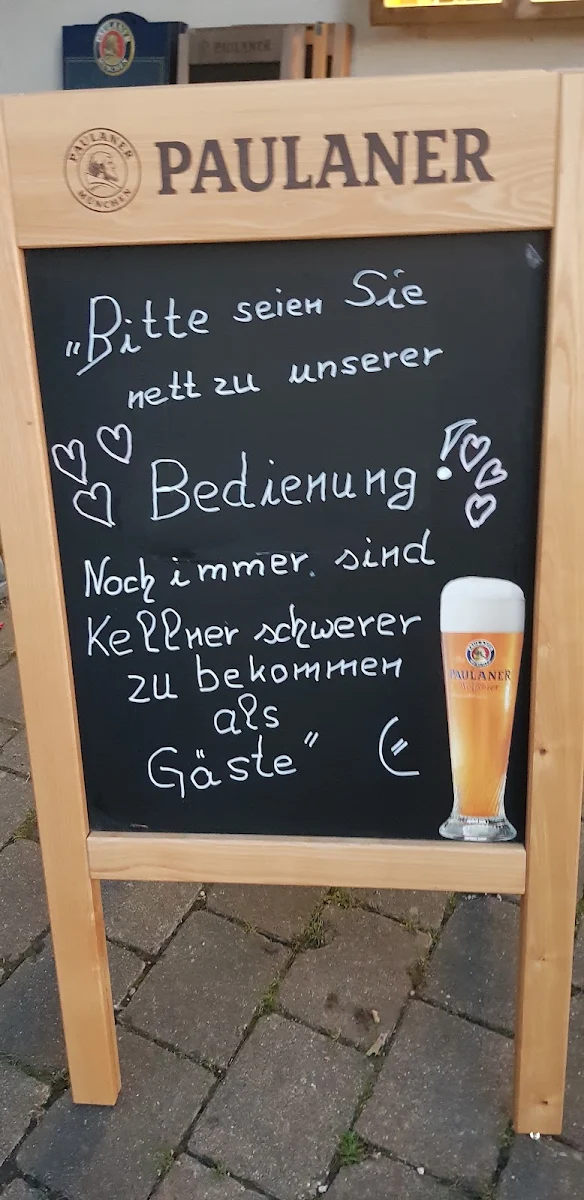 PAULANER
PAULANER MÜNCHEN
PAULANER
„Bitte seien Sie
nett zu unserer
Bedienung!
Noch immer sind
Kellner schwerer
zu bekommen
als
Gäste"
PAULANER